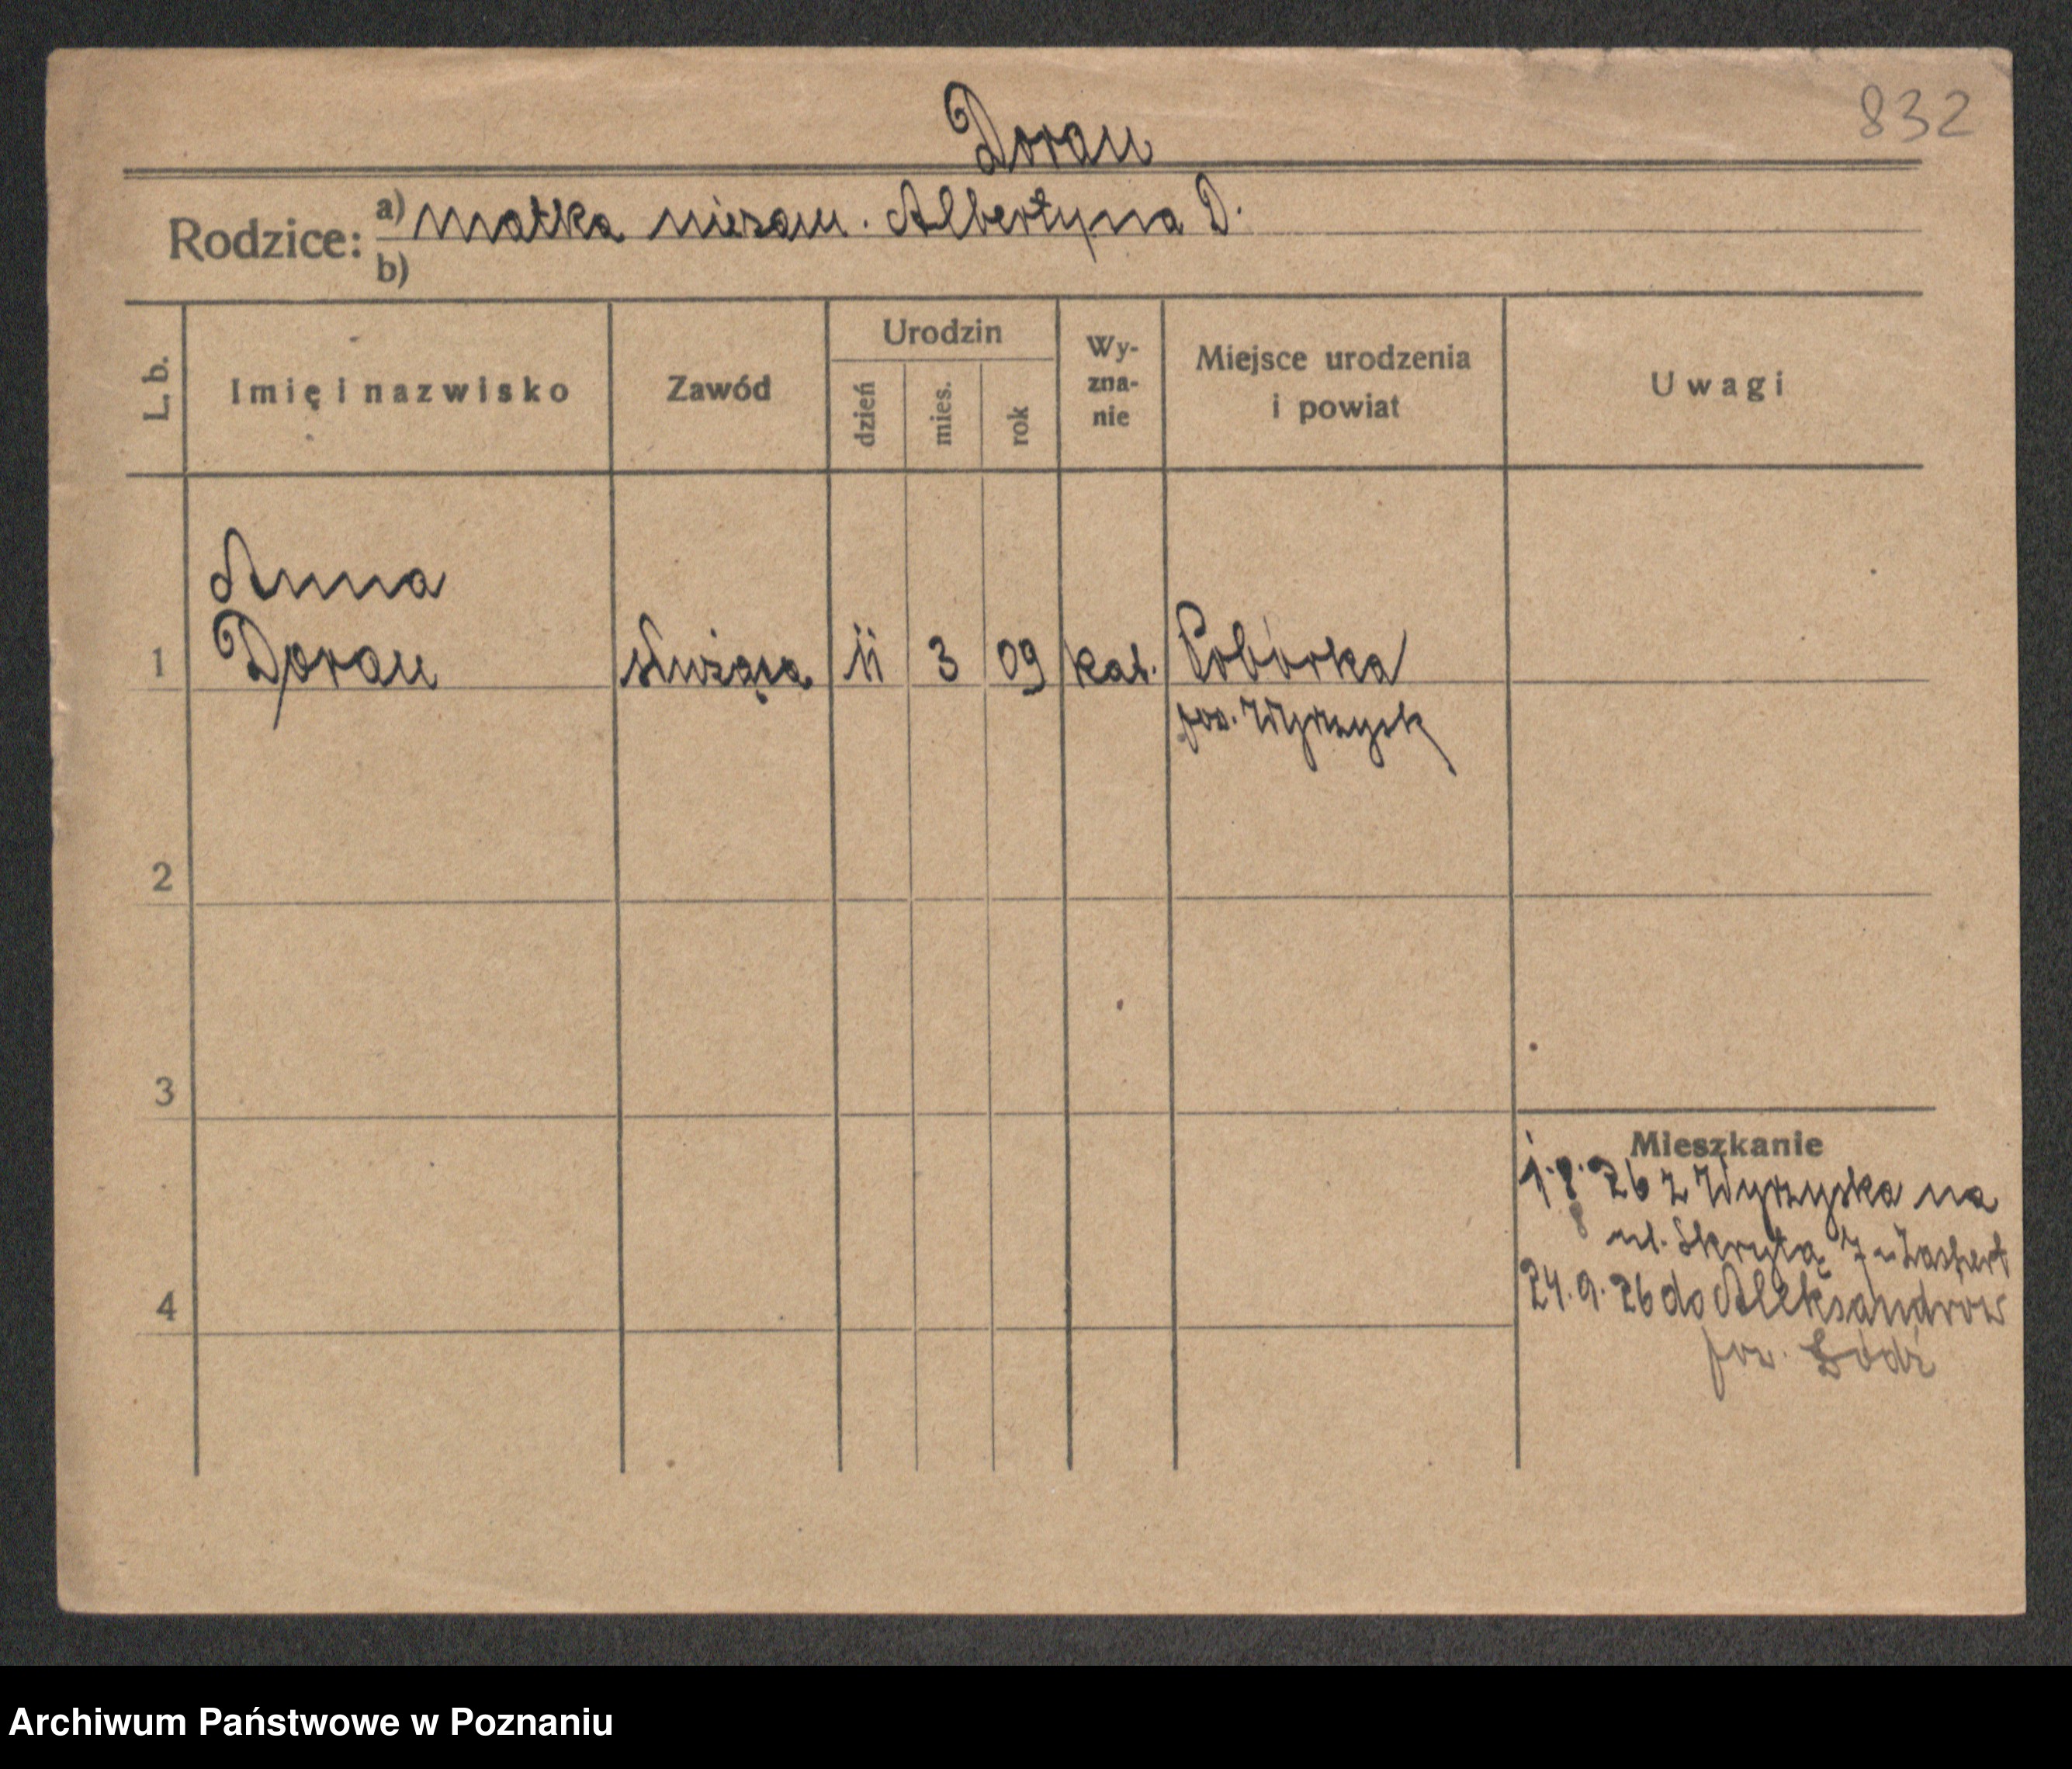 832
Dorau
Rodzice: a) matka niezam. Albertyna D.
b)
L. b.
Imię i nazwisko
Zawód
Urodzin
dzień
mies.
rok
Wy-
zna-
nie
Miejsce urodzenia
i powiat
Uwagi
Anna
1 Dorau służąca 11 3 09 kat. Pobórka
pow. Wyrzysk
2
3
4
Mieszkanie
1.8.26 z Wyrzyska na
8 ul. Skrytą 7 u
24.9.26 do Aleksandrow
pow. Łódź
Archiwum Państwowe w Poznaniu